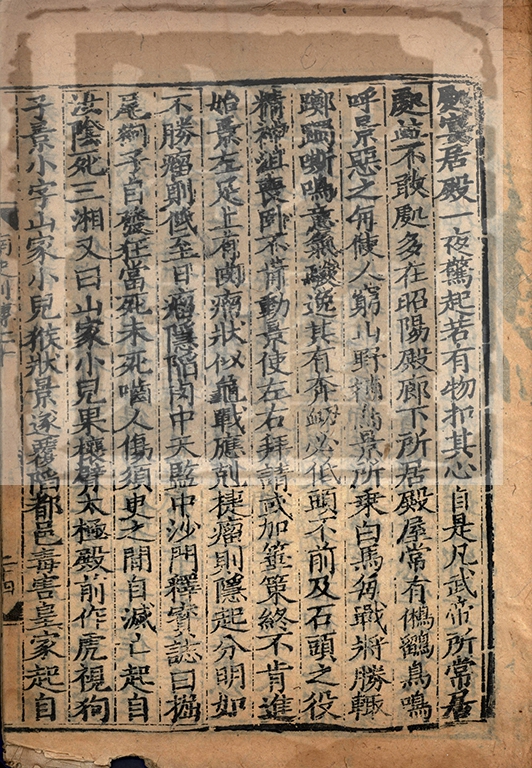 處宴居殿一夜驚起若有物扣其心自是凡武帝所常居
處並不敢處多在昭陽殿廊下所居殿屋常有鵂鶹鳥鳴
呼景惡之每使人窮山野捕鳥景所乘白馬每戰將勝輒
躑躅嘶鳴意氣駿逸其有奔衄必低頭不前及石頭之役
精神沮喪卧不肯動景使左右拜請或加箠策終不肯進
始景左足上有肉瘤狀似龜戰應剋捷瘤則隱起分明如
不勝瘤則低至日瘤隱陷肉中天監中沙門釋寶誌曰掘
尾狗子自發狂當死未死嚙人傷須臾之間自滅亡起自
汝陰死三湘又曰山家小兒果攘臂太極殿前作虎視狗
子景小字山家小兒猴狀景遂覆陷都邑毒害皇家起自